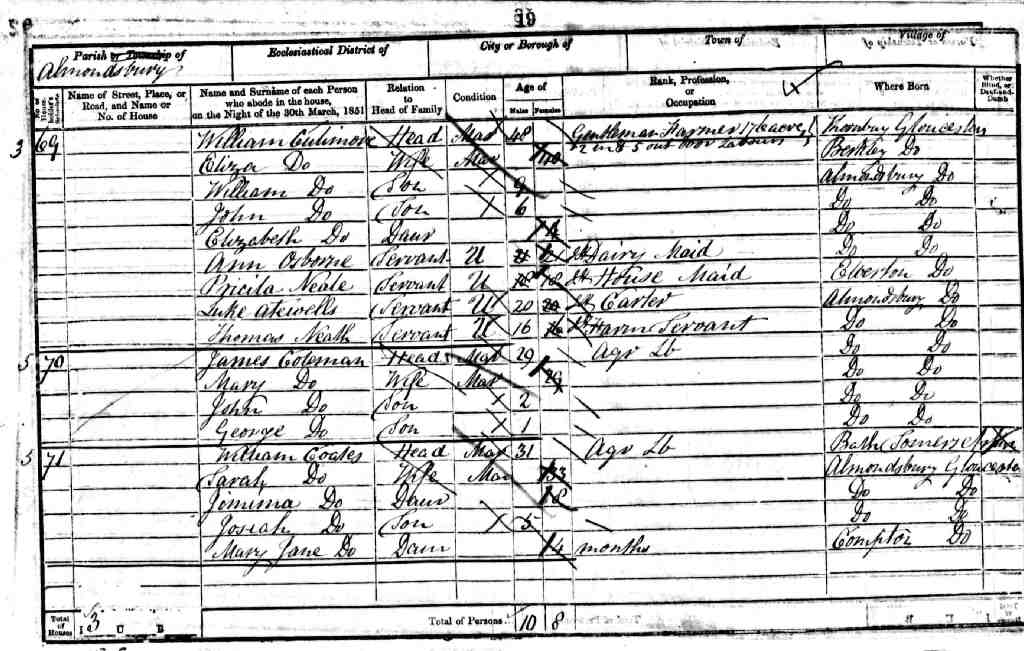 19
Parish or Township of Ecclesiastical District of City or Borough of Town of Village of
Almondsbury
Name of Street, Place, or Road, and Name or No. of House Name and Surname of each Person who abode in the house, on the Night of the 30th March, 1851 Relation to Head of Family Condition Age of Males Females Rank, Profession, or Occupation Where Born Whether Blind, or Deaf-and-Dumb
3 69 William Cullimore Head Mar 48 Gentleman Farmer acres Thornbury Gloucester
2 in & 5 out door Labours
Eliza Do Wife Mar 40 Berkley Do
William Do Son 9 Almondsbury Do
John Do Son 6 Do Do
Elizabeth Do Daur 4 Do Do
Ann Osborne Servant U Dairy Maid Do Do
Pricila Neale Servant U 18 House Maid Elberton Do
Luke Atewells Servant U 20 Carter Almondsbury Do
Thomas Neath Servant U 16 Farm Servant Do Do
5 70 James Coleman Head Mar 29 Agr Lb Do Do
Mary Do Wife Mar 29 Do Do
John Do Son 2 Do Do
George Do Son 1 Do Do
5 71 William Coates Head Mar 31 Agr Lb Bath Somerset
Sarah Do Wife Mar 33 Almondsbury Gloucester
Jemima Do Daur 8 Do Do
Josiah Do Son 5 Do Do
Mary Jane Do Daur 4 months Compton Do
Total of Houses 3 I U B Total of Persons 10 8